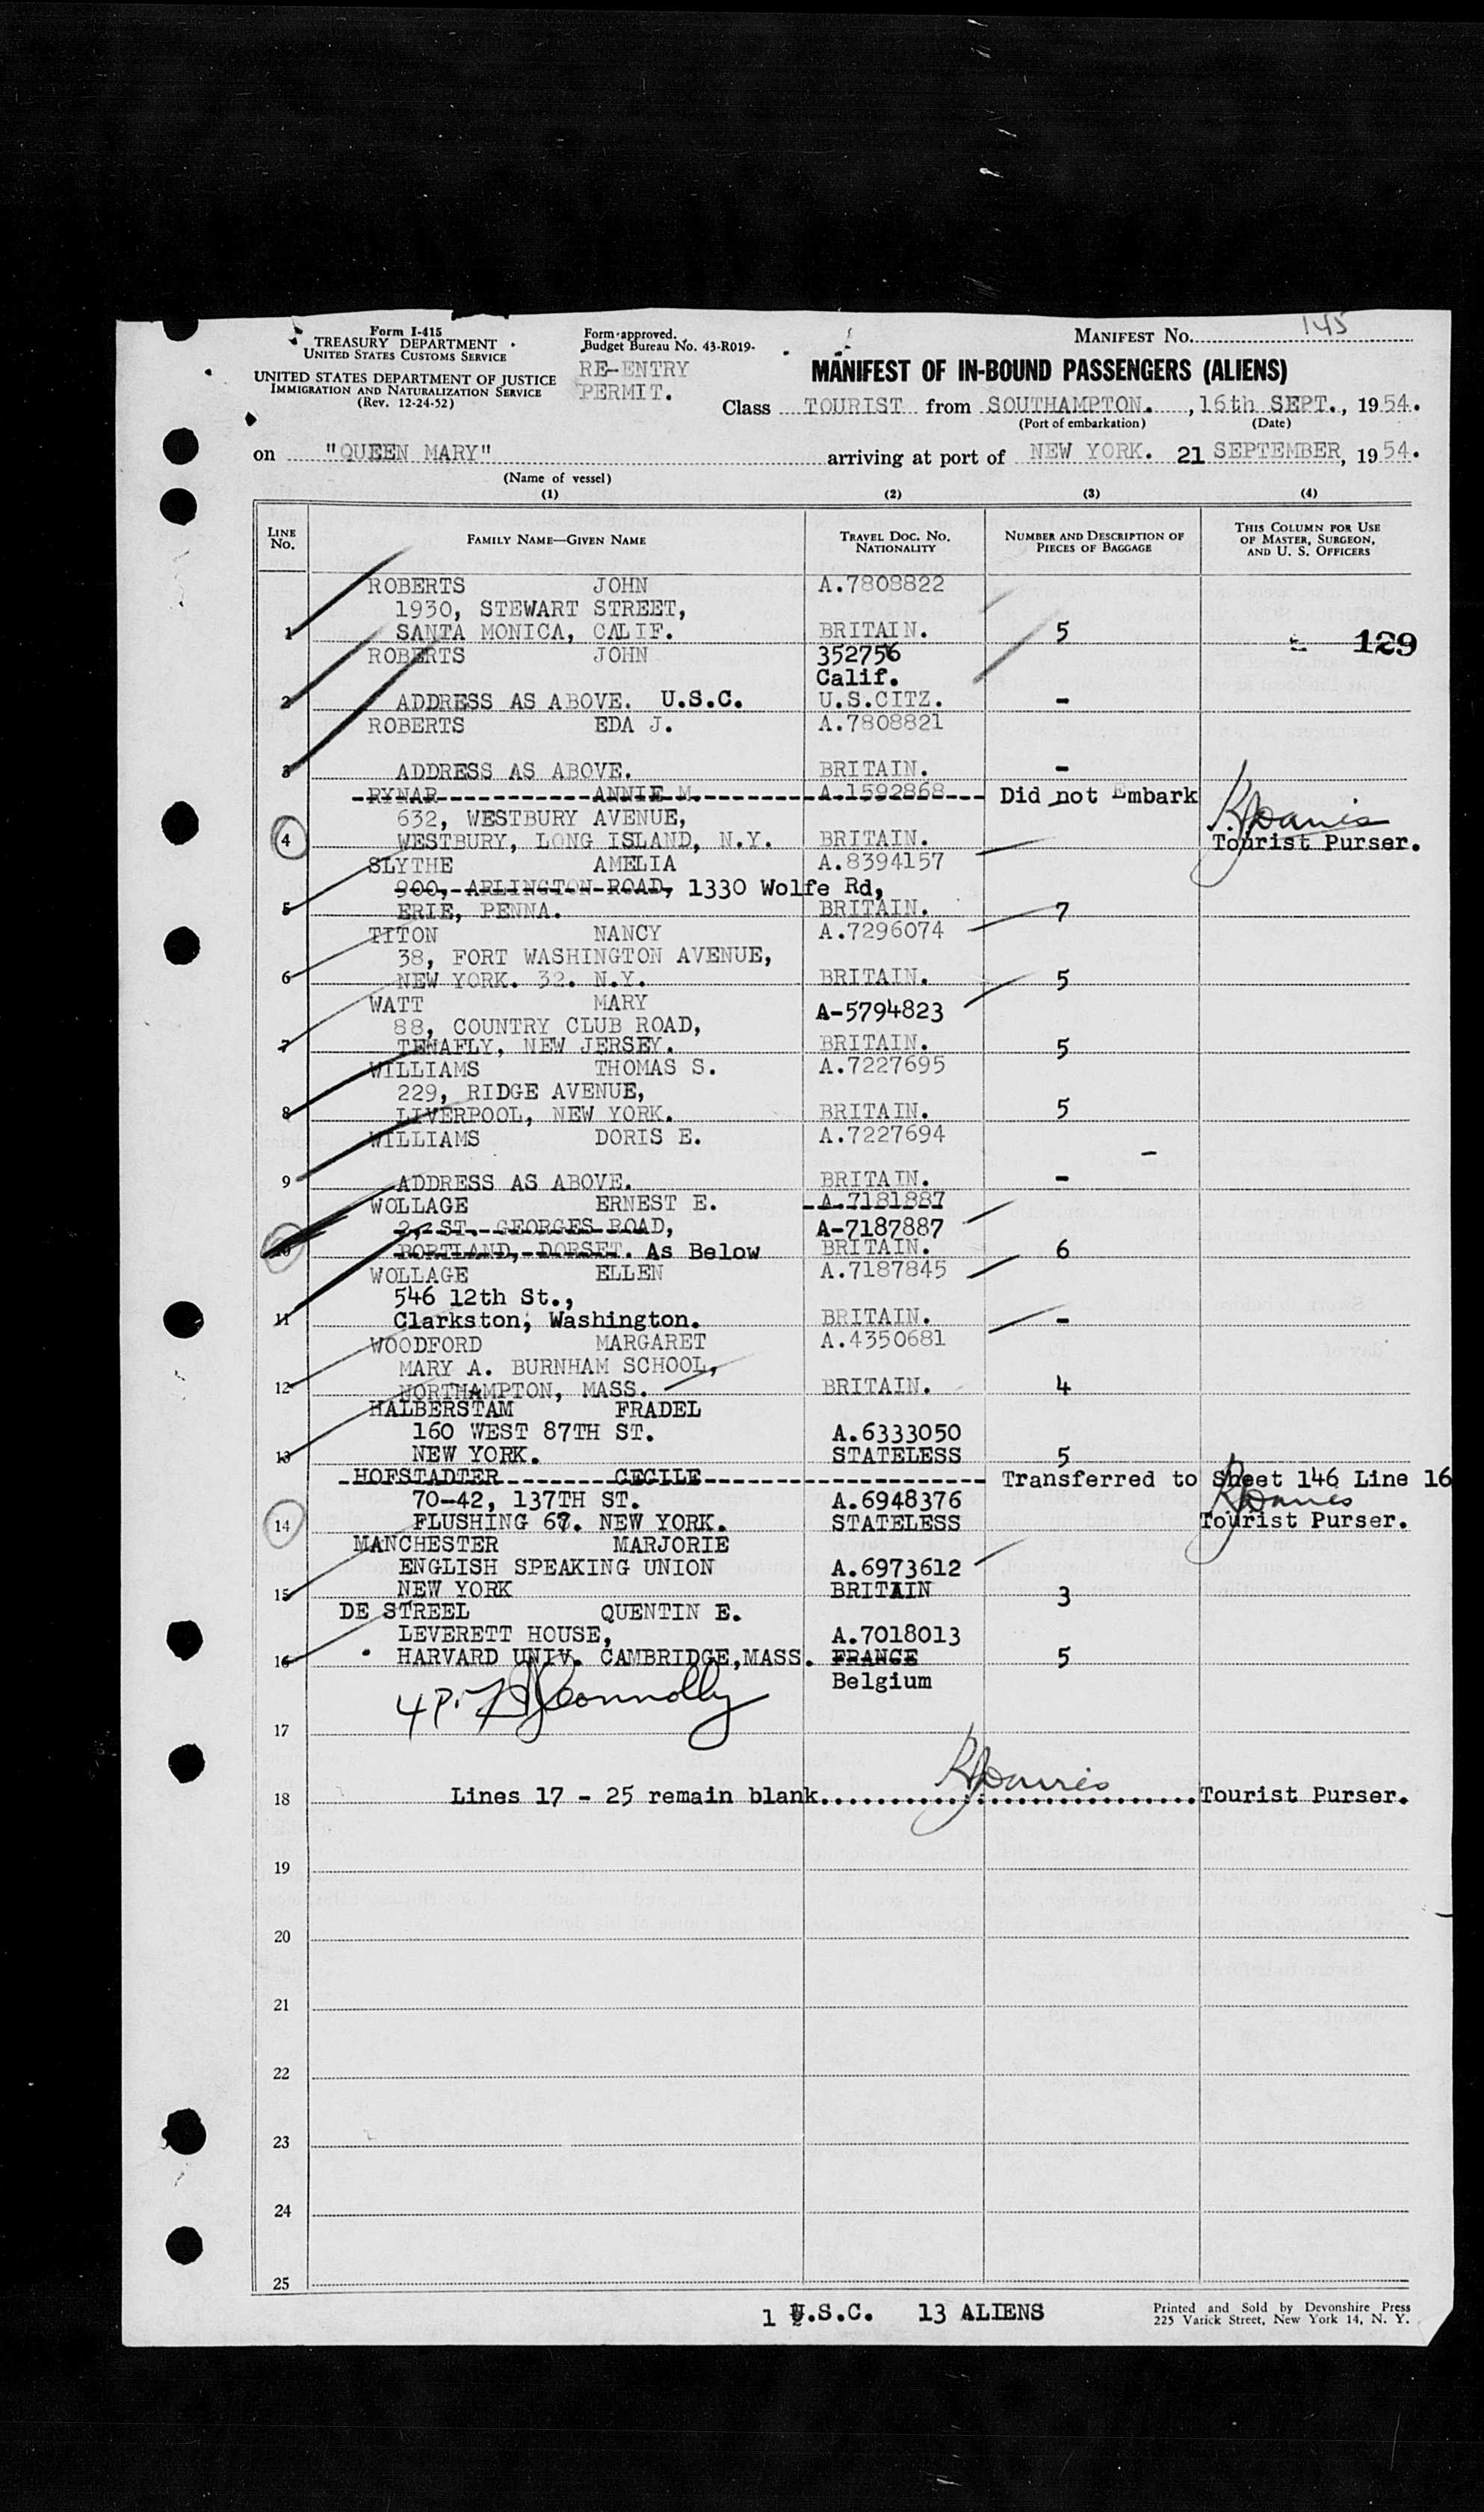 Form I-415
TREASURY DEPARTMENT
UNITED STATES CUSTOMS SERVICE
UNITED STATES DEPARTMENT OF JUSTICE
IMMIGRATION AND NATURALIZATION SERVICE
(Rev. 12-24-52)
Form approved.
Budget Bureau No. 43-R019.
RE-ENTRY
PERMIT.
MANIFEST No. 145
MANIFEST OF IN-BOUND PASSENGERS (ALIENS)
Class TOURIST from SOUTHAMPTON. , 16th SEPT., 1954.
(Port of embarkation) (Date)
on "QUEEN MARY" arriving at port of NEW YORK. 21 SEPTEMBER, 1954.
(Name of vessel)
(1) (2) (3) (4)
LINE No. FAMILY NAME—GIVEN NAME TRAVEL DOC. NO. NATIONALITY NUMBER AND DESCRIPTION OF PIECES OF BAGGAGE THIS COLUMN FOR USE OF MASTER, SURGEON, AND U. S. OFFICERS
ROBERTS JOHN A.7808822
1930, STEWART STREET,
1 SANTA MONICA, CALIF. BRITAIN. 5 129
ROBERTS JOHN 352756
Calif.
2 ADDRESS AS ABOVE. U.S.C. U.S.CITZ. -
ROBERTS EDA J. A.7808821
3 ADDRESS AS ABOVE. BRITAIN. -
RYNAR ANNIE M. A.1592868 Did not Embark
632, WESTBURY AVENUE,
4 WESTBURY, LONG ISLAND, N.Y. BRITAIN. Tourist Purser.
SLYTHE AMELIA A.8394157
900, ARLINGTON ROAD, 1330 Wolfe Rd,
5 ERIE, PENNA. BRITAIN. 7
TITON NANCY A.7296074
38, FORT WASHINGTON AVENUE,
6 NEW YORK. 32. N.Y. BRITAIN. 5
WATT MARY A-5794823
88, COUNTRY CLUB ROAD,
7 TENAFLY, NEW JERSEY. BRITAIN. 5
WILLIAMS THOMAS S. A.7227695
229, RIDGE AVENUE,
8 LIVERPOOL, NEW YORK. BRITAIN. 5
WILLIAMS DORIS E. A.7227694
9 ADDRESS AS ABOVE. BRITAIN. -
WOLLAGE ERNEST E. A.7181887
2, ST. GEORGES ROAD, A-7187887
10 PORTLAND, DORSET. As Below BRITAIN. 6
WOLLAGE ELLEN A.7187845
546 12th St.,
11 Clarkston, Washington. BRITAIN. -
WOODFORD MARGARET A.4350681
MARY A. BURNHAM SCHOOL,
12 NORTHAMPTON, MASS. BRITAIN. 4
HALBERSTAM FRADEL
160 WEST 87TH ST. A.6333050
13 NEW YORK. STATELESS 5
HOFSTADTER CECILE Transferred to Sheet 146 Line 16
70-42, 137TH ST. A.6948376
14 FLUSHING 67. NEW YORK. STATELESS Tourist Purser.
MANCHESTER MARJORIE
ENGLISH SPEAKING UNION A.6973612
15 NEW YORK BRITAIN 3
DE STREEL QUENTIN E.
LEVERETT HOUSE, A.7018013
16 HARVARD UNIV. CAMBRIDGE,MASS. FRANCE 5
Belgium
Connolly
17
18 Lines 17 - 25 remain blank. Tourist Purser.
19
20
21
22
23
24
25
1 U.S.C. 13 ALIENS
Printed and Sold by Devonshire Press
225 Varick Street, New York 14, N. Y.